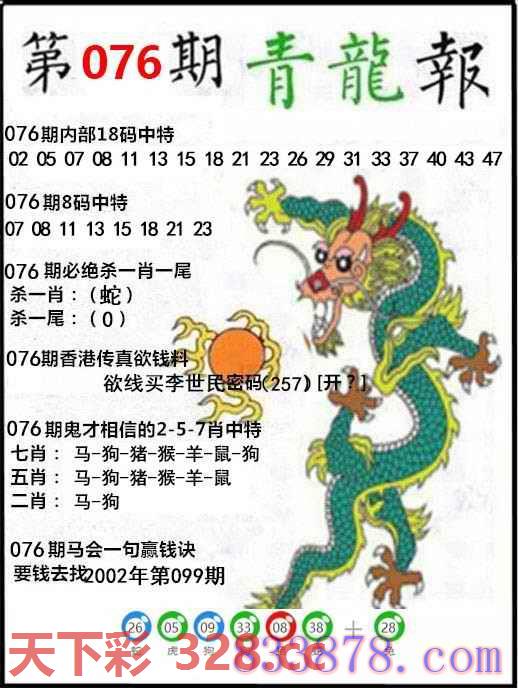 第076期青龍報
076期内部18码中特
02 05 07 08 11 13 15 18 21 23 26 29 31 33 37 40 43 47
076期8码中特
07 08 11 13 15 18 21 23
076期必绝杀一肖一尾
杀一肖：(蛇)
杀一尾：(0)
076期香港传真欲钱料
欲线买李世民密码(257)[开?]
076期鬼才相信的2-5-7肖中特
七肖： 马-狗-猪-猴-羊-鼠-狗
五肖： 马-狗-猪-猴-羊-鼠
二肖： 马-狗
076期马会一句赢钱诀
要钱去找2002年第099期
26 05 09 33 08 38 + 28
虎 狗
天下彩
833878.com